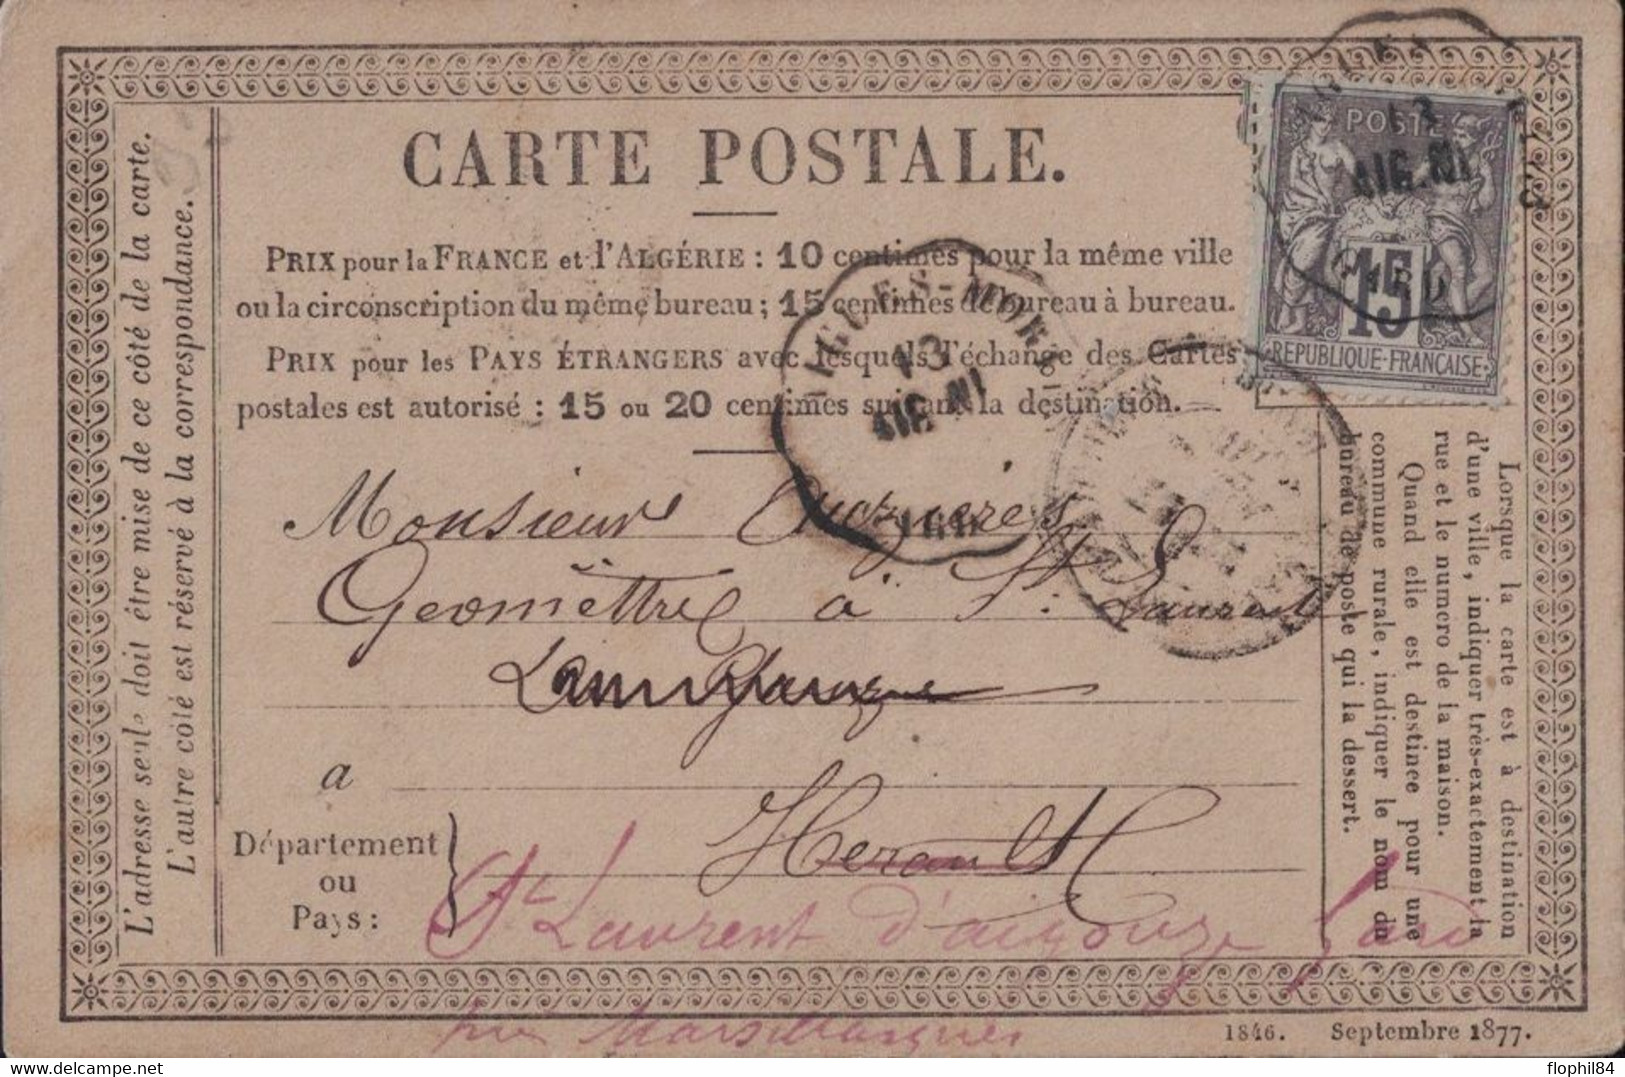 CARTE POSTALE.
PRIX pour la FRANCE et l'ALGÉRIE : 10 centimes pour la même ville
ou la circonscription du même bureau ; 15 centimes de bureau à bureau.
PRIX pour les PAYS ÉTRANGERS avec lesquels l'échange des Cartes
postales est autorisé : 15 ou 20 centimes suivant la destination.
L'adresse seule doit être mise de ce côté de la carte.
L'autre côté est réservé à la correspondance.
POSTE
15
REPUBLIQUE-FRANÇAISE
AIG.NI
GARD
13
AIG.NI
Monsieur
Geomêttre à St. Laurent
a
Département
ou
Pays :
Herault
St Laurent d'aigouze Gard
près Marsillargues
Lorsque la carte est à destination
d'une ville, indiquer très-exactement la
rue et le numero de la maison.
Quand elle est destinee pour une
commune rurale, indiquer le nom du
bureau de poste qui la dessert.
1846. Septembre 1877.
delcampe.net
flophil84